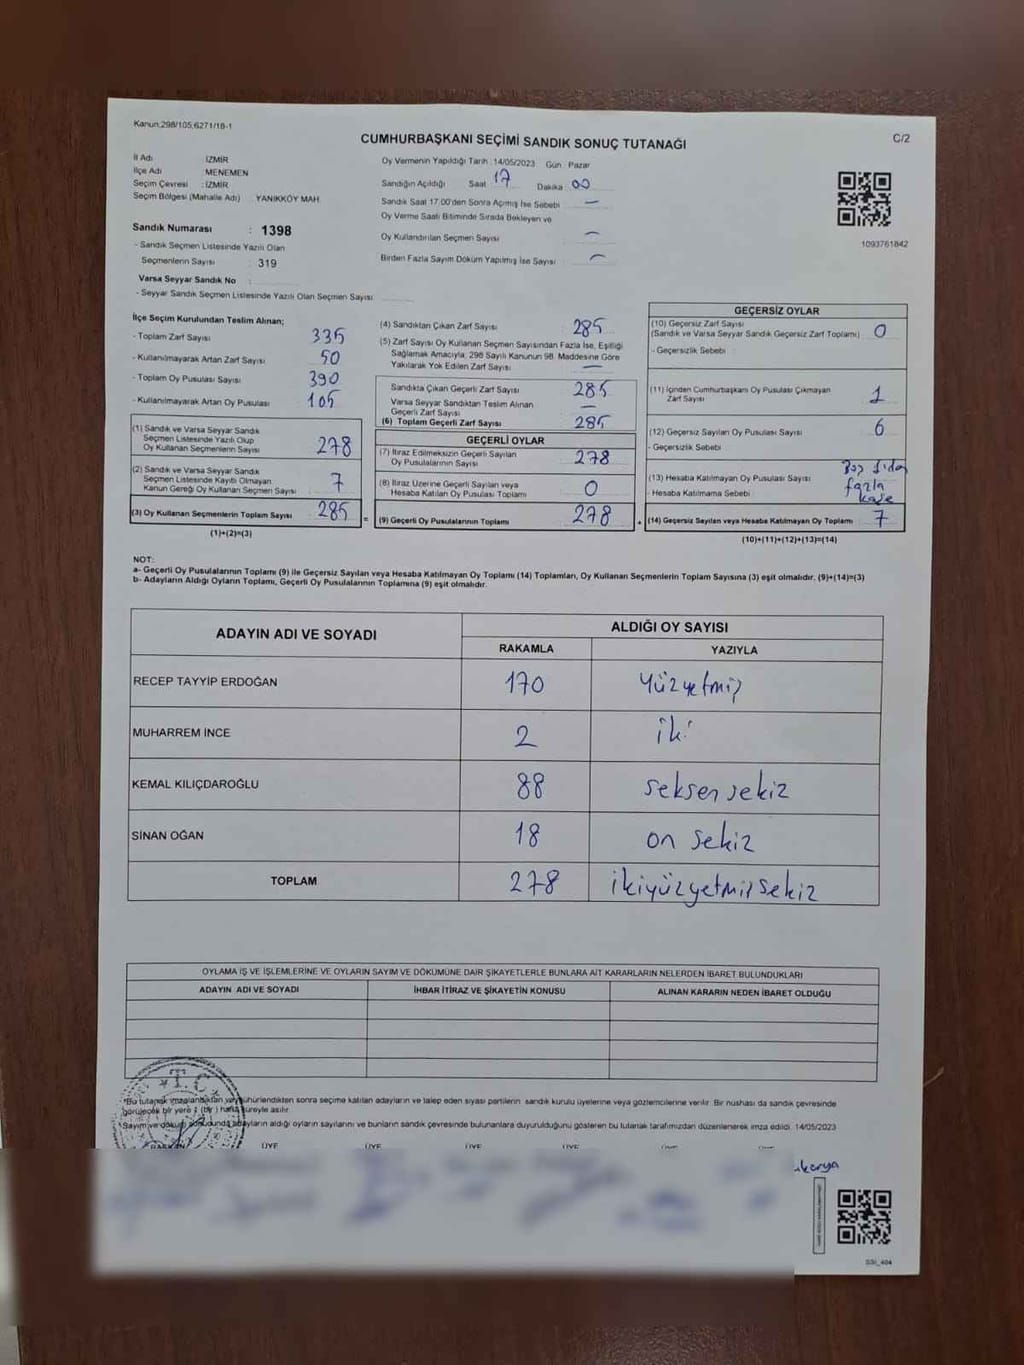 Kanun:298/105,6271/16-1
C/2
CUMHURBAŞKANI SEÇİMİ SANDIK SONUÇ TUTANAĞI
İl Adı İZMİR
İlçe Adı MENEMEN
Seçim Çevresi :İZMİR
Seçim Bölgesi (Mahalle Adı) YANIKKÖY MAH.
Oy Vermenin Yapıldığı Tarih :14/05/2023 Gün: Pazar
Sandığın Açıldığı Saat 17 Dakika 00
Sandık Saat 17.00'den Sonra Açılmış İse Sebebi —
Oy Verme Saati Bitiminde Sırada Bekleyen ve
Oy Kullandırılan Seçmen Sayısı —
Birden Fazla Sayım Döküm Yapılmış İse Sayısı —
1093761842
Sandık Numarası : 1398
- Sandık Seçmen Listesinde Yazılı Olan
Seçmenlerin Sayısı : 319
Varsa Seyyar Sandık No :
- Seyyar Sandık Seçmen Listesinde Yazılı Olan Seçmen Sayısı:
İlçe Seçim Kurulundan Teslim Alınan;
- Toplam Zarf Sayısı 335
- Kullanılmayarak Artan Zarf Sayısı 50
- Toplam Oy Pusulası Sayısı 390
- Kullanılmayarak Artan Oy Pusulası 105
(1) Sandık ve Varsa Seyyar Sandık
Seçmen Listesinde Yazılı Olup
Oy Kullanan Seçmenlerin Sayısı 278
(2) Sandık ve Varsa Seyyar Sandık
Seçmen Listesinde Kayıtlı Olmayan
Kanun Gereği Oy Kullanan Seçmen Sayısı 7
(3) Oy Kullanan Seçmenlerin Toplam Sayısı 285
(1)+(2)=(3)
(4) Sandıktan Çıkan Zarf Sayısı 285
(5) Zarf Sayısı Oy Kullanan Seçmen Sayısından Fazla İse, Eşitliği
Sağlamak Amacıyla, 298 Sayılı Kanunun 98. Maddesine Göre
Yakılarak Yok Edilen Zarf Sayısı —
Sandıkta Çıkan Geçerli Zarf Sayısı 285
Varsa Seyyar Sandıktan Teslim Alınan
Geçerli Zarf Sayısı —
(6) Toplam Geçerli Zarf Sayısı 285
GEÇERLİ OYLAR
(7) İtiraz Edilmeksizin Geçerli Sayılan
Oy Pusulalarının Sayısı 278
(8) İtiraz Üzerine Geçerli Sayılan veya
Hesaba Katılan Oy Pusulası Toplamı 0
= (9) Geçerli Oy Pusulalarının Toplamı 278
GEÇERSİZ OYLAR
(10) Geçersiz Zarf Sayısı
(Sandık ve Varsa Seyyar Sandık Geçersiz Zarf Toplamı) 0
- Geçersizlik Sebebi :
(11) İçinden Cumhurbaşkanı Oy Pusulası Çıkmayan
Zarf Sayısı 1
(12) Geçersiz Sayılan Oy Pusulası Sayısı 6
- Geçersizlik Sebebi :
(13) Hesaba Katılmayan Oy Pusulası Sayısı
- Hesaba Katılmama Sebebi : fazla
kaşe
+ (14) Geçersiz Sayılan veya Hesaba Katılmayan Oy Toplamı 7
(10)+(11)+(12)+(13)=(14)
NOT:
a- Geçerli Oy Pusulalarının Toplamı (9) ile Geçersiz Sayılan veya Hesaba Katılmayan Oy Toplamı (14) Toplamları, Oy Kullanan Seçmenlerin Toplam Sayısına (3) eşit olmalıdır. (9)+(14)=(3)
b- Adayların Aldığı Oyların Toplamı, Geçerli Oy Pusulalarının Toplamına (9) eşit olmalıdır.
ADAYIN ADI VE SOYADI
ALDIĞI OY SAYISI
RAKAMLA YAZIYLA
RECEP TAYYİP ERDOĞAN 170 Yüzyetmiş
MUHARREM İNCE 2 iki
KEMAL KILIÇDAROĞLU 88 seksensekiz
SİNAN OĞAN 18 on sekiz
TOPLAM 278 ikiyüzyetmişsekiz
OYLAMA İŞ VE İŞLEMLERİNE VE OYLARIN SAYIM VE DÖKÜMÜNE DAİR ŞİKAYETLERLE BUNLARA AİT KARARLARIN NELERDEN İBARET BULUNDUKLARI
ADAYIN ADI VE SOYADI İHBAR İTİRAZ VE ŞİKAYETİN KONUSU ALINAN KARARIN NEDEN İBARET OLDUĞU
T.C.
*Bu tutanak imzalandıktan ve mühürlendikten sonra seçime katılan adayların ve talep eden siyasi partilerin sandık kurulu üyelerine veya gözlemcilerine verilir. Bir nüshası da sandık çevresinde
görülecek bir yere 1 (bir) hafta süreyle asılır.
*Sayım ve döküm sonucunda adayların aldığı oyların sayılarını ve bunların sandık çevresinde bulunanlara duyurulduğunu gösteren bu tutanak tarafımızdan düzenlenerek imza edildi. 14/05/2023
BAŞKAN ÜYE ÜYE ÜYE ÜYE
SSI_404